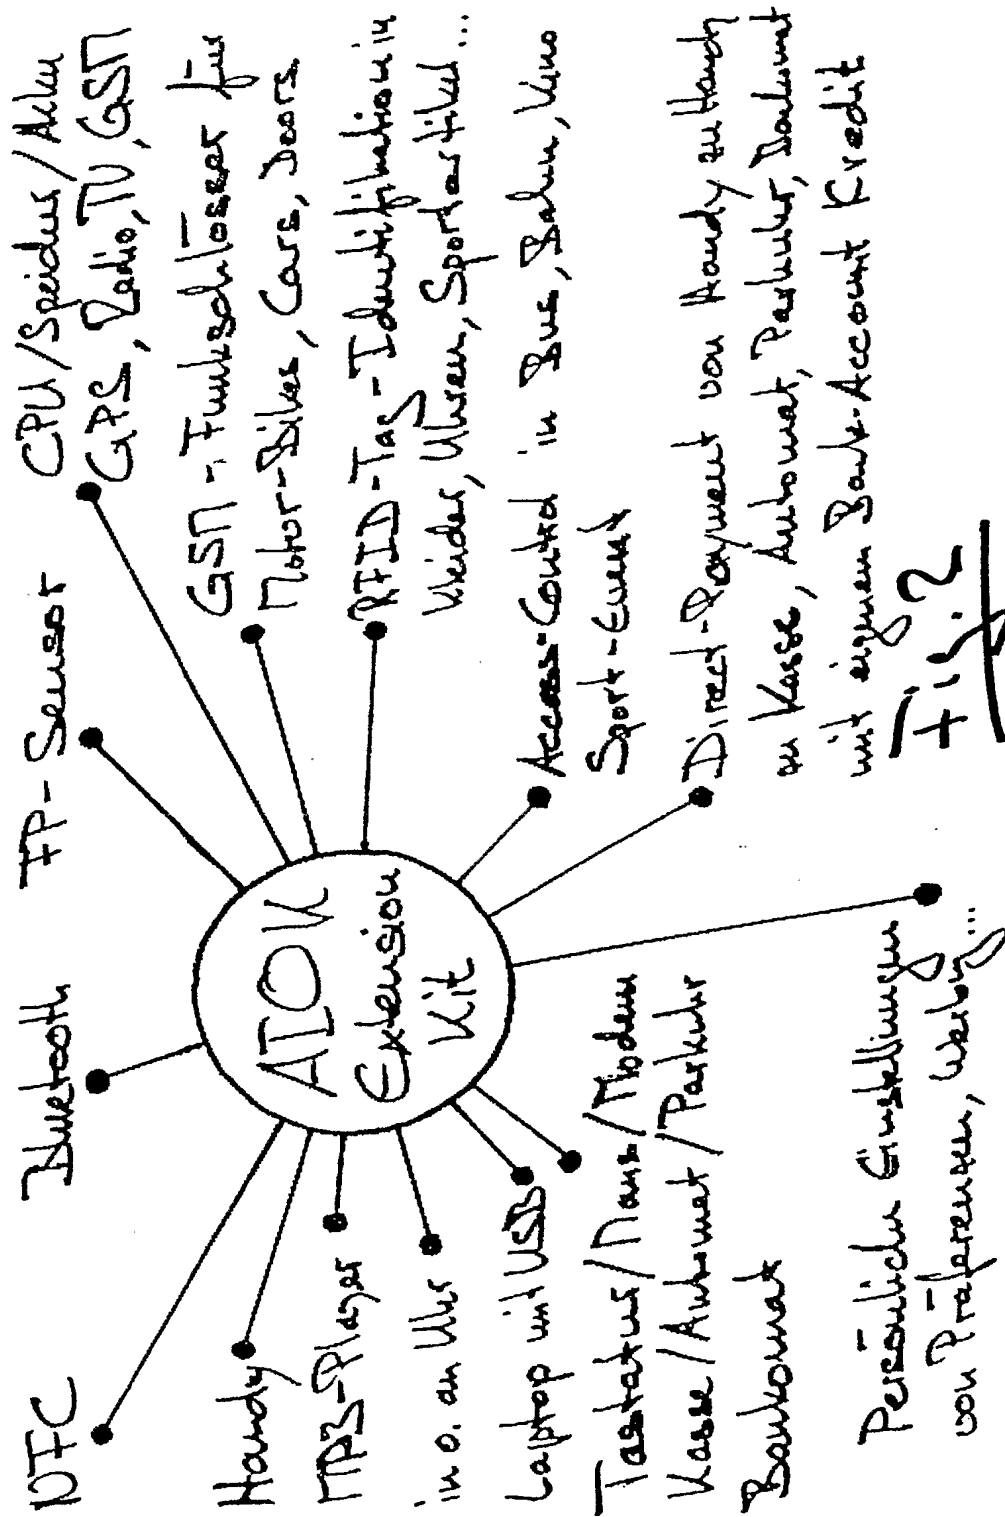 NFC
Bluetooth
FP-Sensor
CPU/Speicher/Akku
GPS, Radio, TV, GSM
GSM-Funkschlösser für
Motor-Bikes, Cars, Doors
RFID-Tag-Identifikation in
Kleider, Uhren, Sportartikel...
Access-Control in Bus, Bahn, Kino
Sport-Event
Direct-Payment von Handy zu Handy
an Kasse, Automat, Parkuhr, Bankomat
mit eigenem Bank-Account Kredit
Handy
MP3-Player
in o. an Uhr
Laptop mit USB
Tastatur/Maus/Modem
Kasse/Automat/Parkuhr
Bankomat
Persönliche Einstellungen
von Präferenzen, Werbg...
AIOK
Extension
Kit
Fig. 2